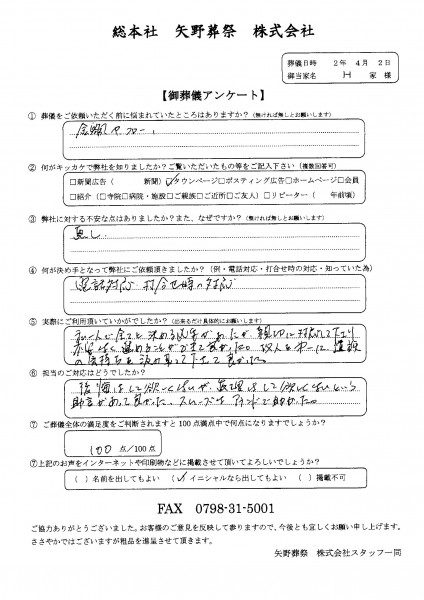 総本社 矢野葬祭 株式会社
葬儀日時 2年 4月 2日
御当家名 H 家 様
【御葬儀アンケート】
① 葬儀をご依頼いただく前に悩まれていたところはありますか?(無ければ無しとお願いします)
② 何がキッカケで弊社を知りましたか?ご覧いただいたもの等をご記入下さい(複数回答可)
□新聞広告( 新聞)☑タウンページ□ポスティング広告□ホームページ□会員
□紹介(□寺院□病院・施設□ご親族□ご近所□ご友人)□リピーター( 年前頃)
③ 弊社に対する不安な点はありましたか?また、なぜですか?(無ければ無しとお願いします)
無し
④ 何が決め手となって弊社にご依頼頂きましたか?(例・電話対応・打合せ時の対応・知っていた為)
電話対応 打合せ時の対応
⑤ 実際にご利用頂いていかがでしたか?(出来るだけ具体的にお願いします)
私一人で全てを決める必要があったが、親切に対応して下さり
⑥ 担当のご対応はどうでしたか?
後悔はして欲しくないが無理はして欲しくないという
助言があって良かった。スムーズな
⑦ ご葬儀全体の満足度をご判断されますと100点満点中で何点になりますでしょうか?
100 点/100点
⑦上記のお声をインターネットや印刷物などに掲載させて頂いてよろしいでしょうか?
( )名前を出してもよい (✓)イニシャルなら出してもよい ( )掲載不可
FAX 0798-31-5001
ご協力ありがとうございました。お客様のご意見を反映して参りますので、今後とも宜しくお願い申し上げます。
ささやかではございますが粗品を進呈させて頂きます。
矢野葬祭 株式会社スタッフ一同